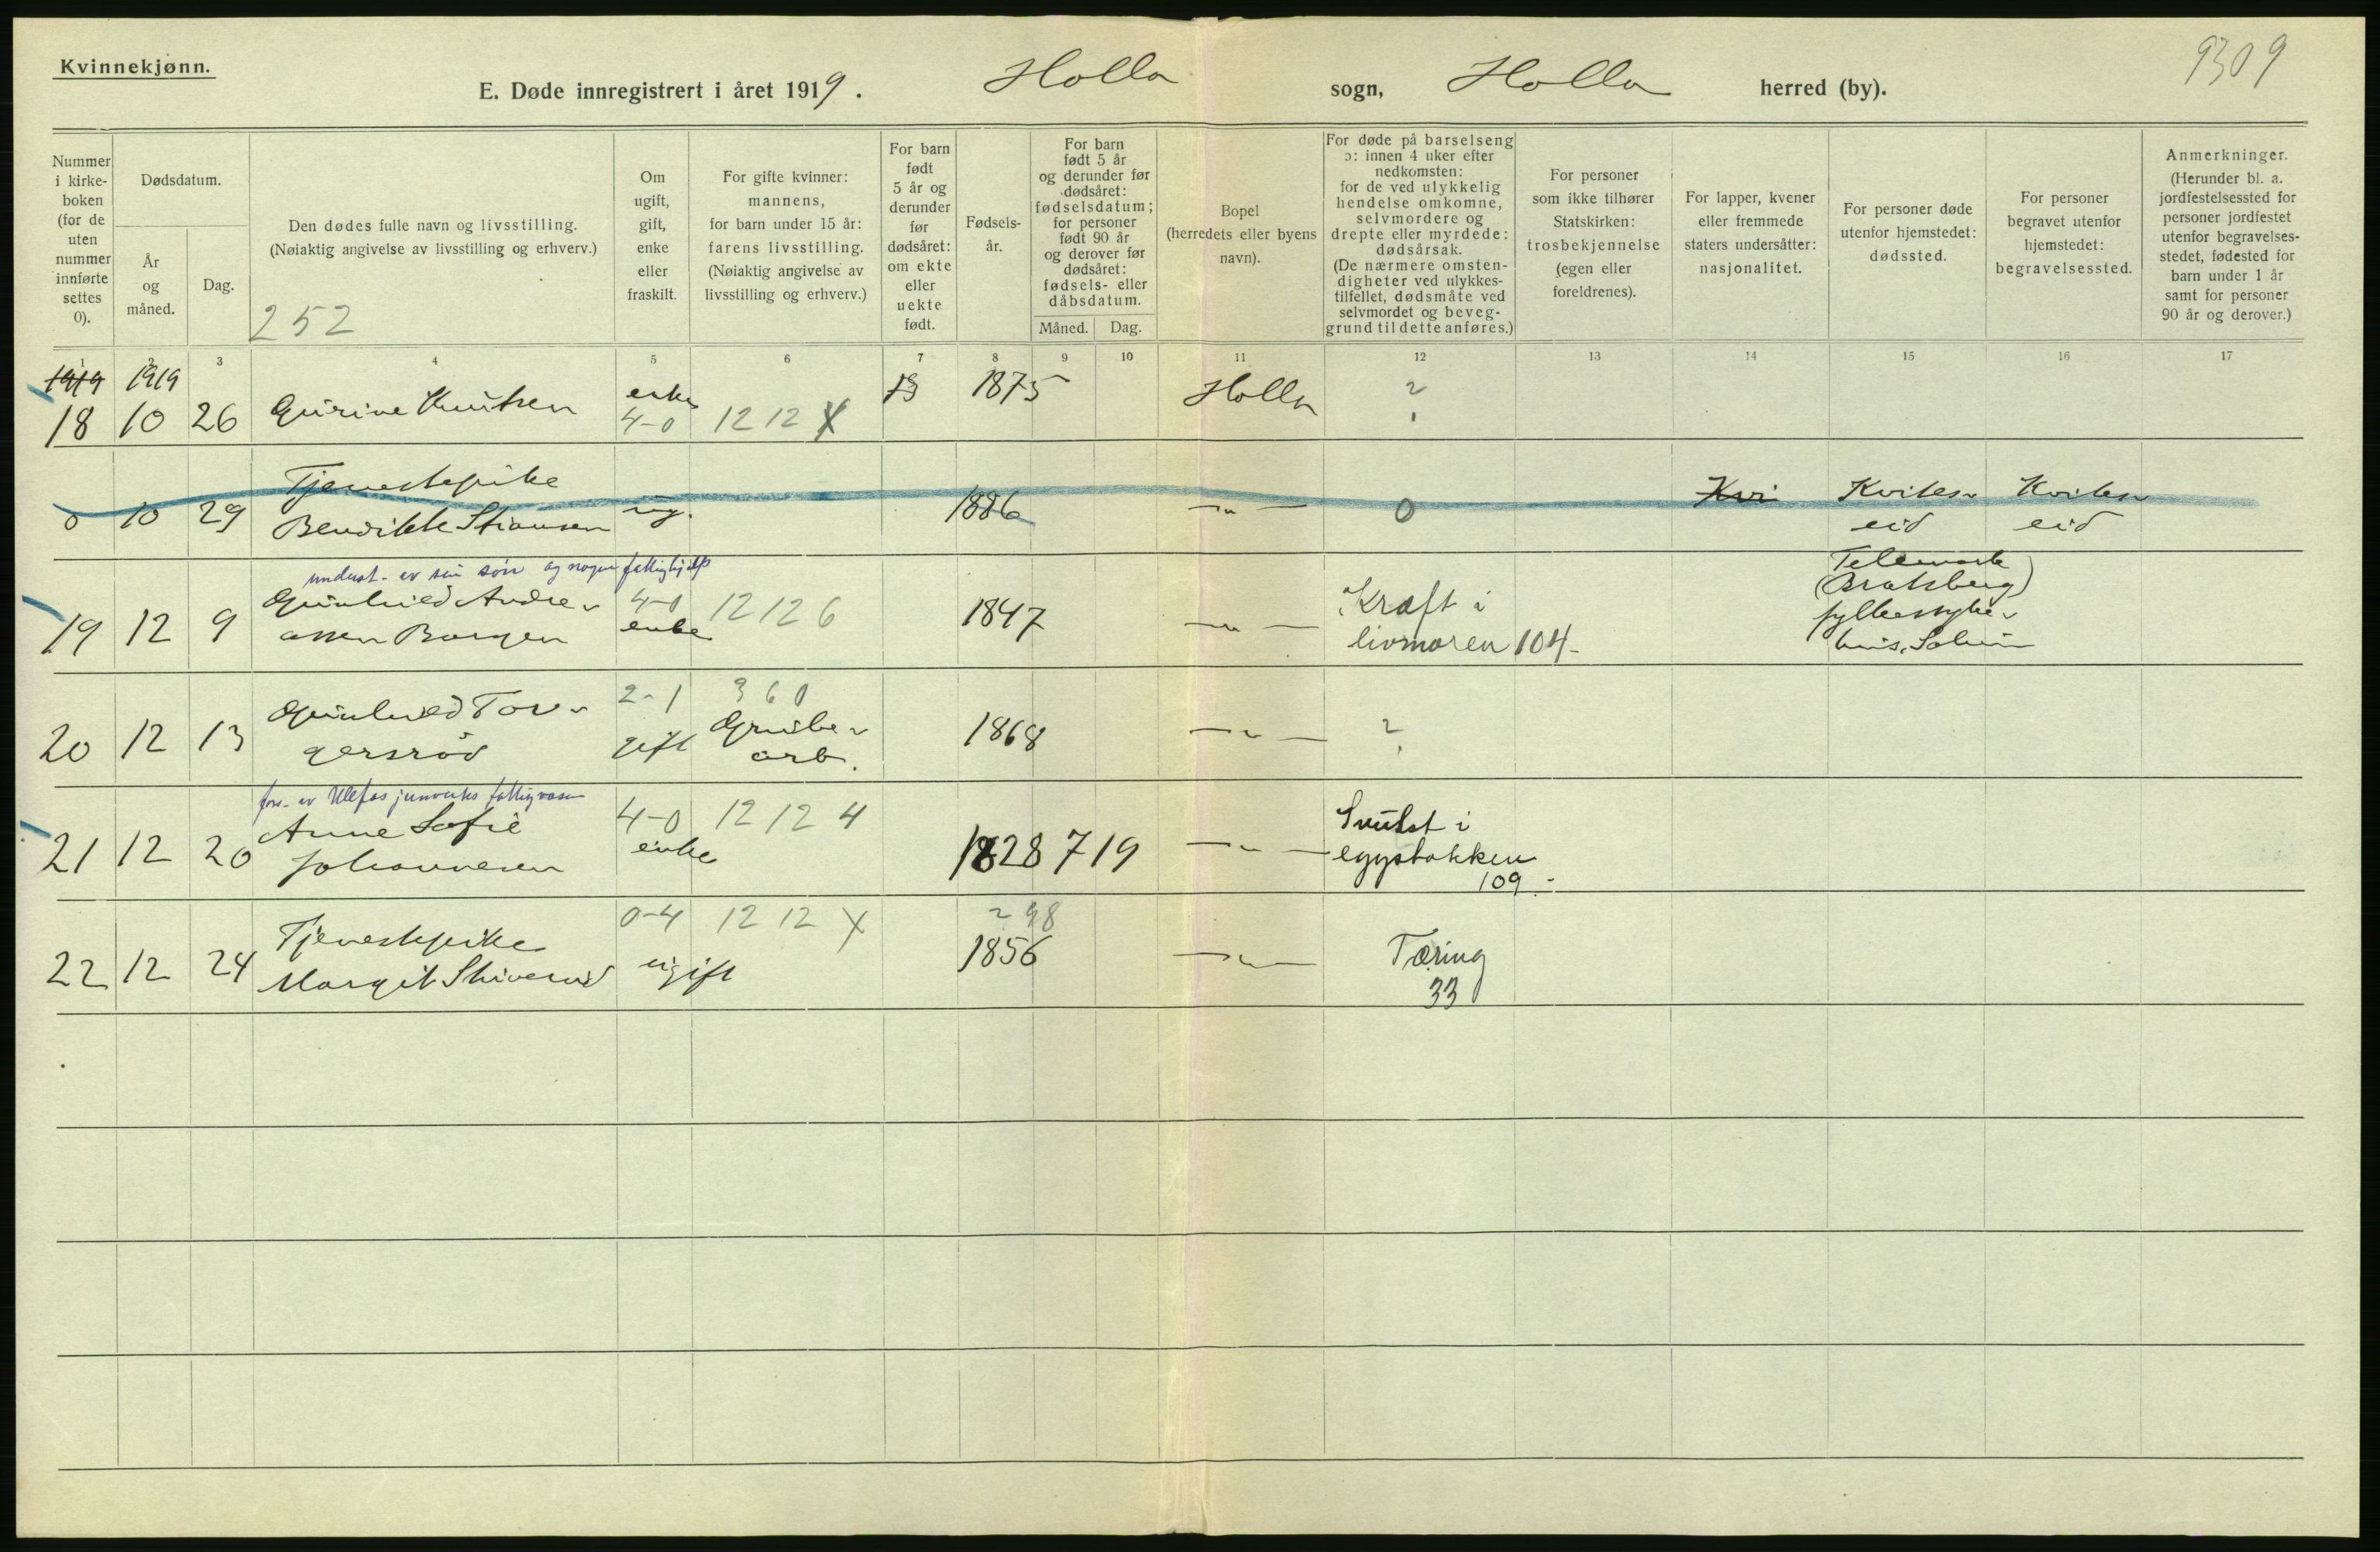 Kvinnekjønn.
9309
E. Døde innregistrert i året 1919. Holla sogn, Holla herred (by).
Nummer i kirke- boken (for de uten nummer innførte settes 0).
Dødsdatum.
År og måned.
Dag.
Den dødes fulle navn og livsstilling.
(Nøiaktig angivelse av livsstilling og erhverv.)
252
Om ugift, gift, enke eller fraskilt.
For gifte kvinner: mannens, for barn under 15 år: farens livsstilling.
(Nøiaktig angivelse av livsstilling og erhverv.)
For barn født 5 år og derunder før dødsåret: om ekte eller uekte født.
Fødsels- år.
For barn født 5 år og derunder før dødsåret: fødselsdatum; for personer født 90 år og derover før dødsåret: fødsels- eller dåbsdatum.
Måned. Dag.
Bopel (herredets eller byens navn).
For døde på barselseng ɔ: innen 4 uker efter nedkomsten: for de ved ulykkelig hendelse omkomne, selvmordere og drepte eller myrdede: dødsårsak.
(De nærmere omsten- digheter ved ulykkes- tilfellet, dødsmåte ved selvmordet og beveg- grund til dette anføres.)
For personer som ikke tilhører Statskirken: trosbekjennelse (egen eller foreldrenes).
For lapper, kvener eller fremmede staters undersåtter: nasjonalitet.
For personer døde utenfor hjemstedet: dødssted.
For personer begravet utenfor hjemstedet: begravelsessted.
Anmerkninger.
(Herunder bl. a. jordfestelsessted for personer jordfestet utenfor begravelses- stedet, fødested for barn under 1 år samt for personer 90 år og derover.)
1 2 3 4 5 6 7 8 9 10 11 12 13 14 15 16 17
1919 1919
18 10 26 Gurine Knutsen enke 4-0 12 12 X 1875 Holla ?
0 10 29 Tjenestepike
Bendikte ug. 1886 -"- 0 Kvi Kvites- Kvites-
eid eid
underst. av sin søn og nogen fattighjelp
19 12 9 Gunhild Andre- 4-0 12 12 6 1847 -"- Kræft i
assen Borgen enke livmoren 104-
Telemark
(Bratsberg)
fylkessyke-
hus,
20 12 13 Gunhild Tor- 2-1 360 1868 -"- ?
gersrød gift Grube-
arb.
fors. av Ulefos jernverks fattigvæsen
21 12 20 Anne Sofie 4-0 12 12 4 1828 7 19 -"- Svulst i
Johannesen enke eggstokken
109.-
22 12 24 Tjenestepike 0-4 12 12 X 298
Margit ugift 1856 -"- Tæring
33